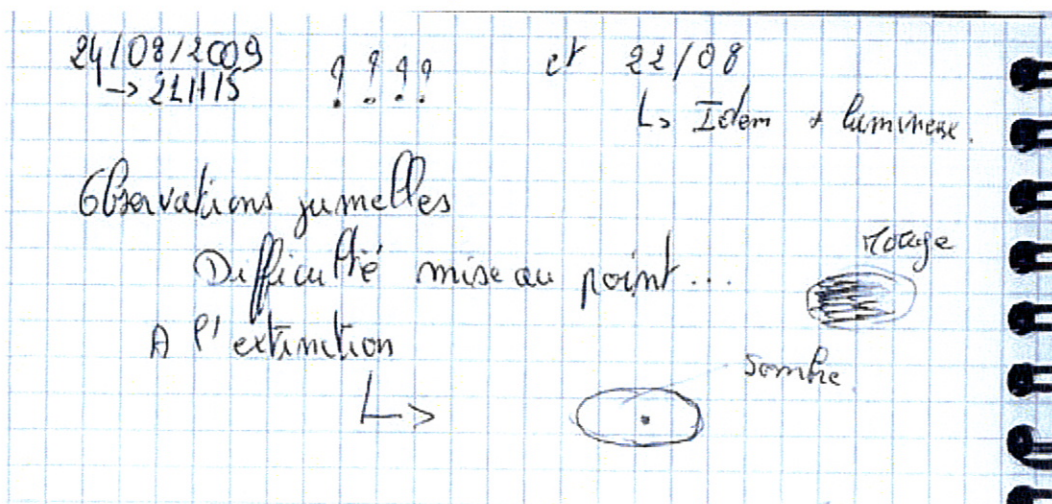 24/08/2009 ???? et 22/08
→ 21H15
↳ Idem + lumineuse.
Observations jumelles
Difficulté mise au point...
rouge
A l'extinction
sombre